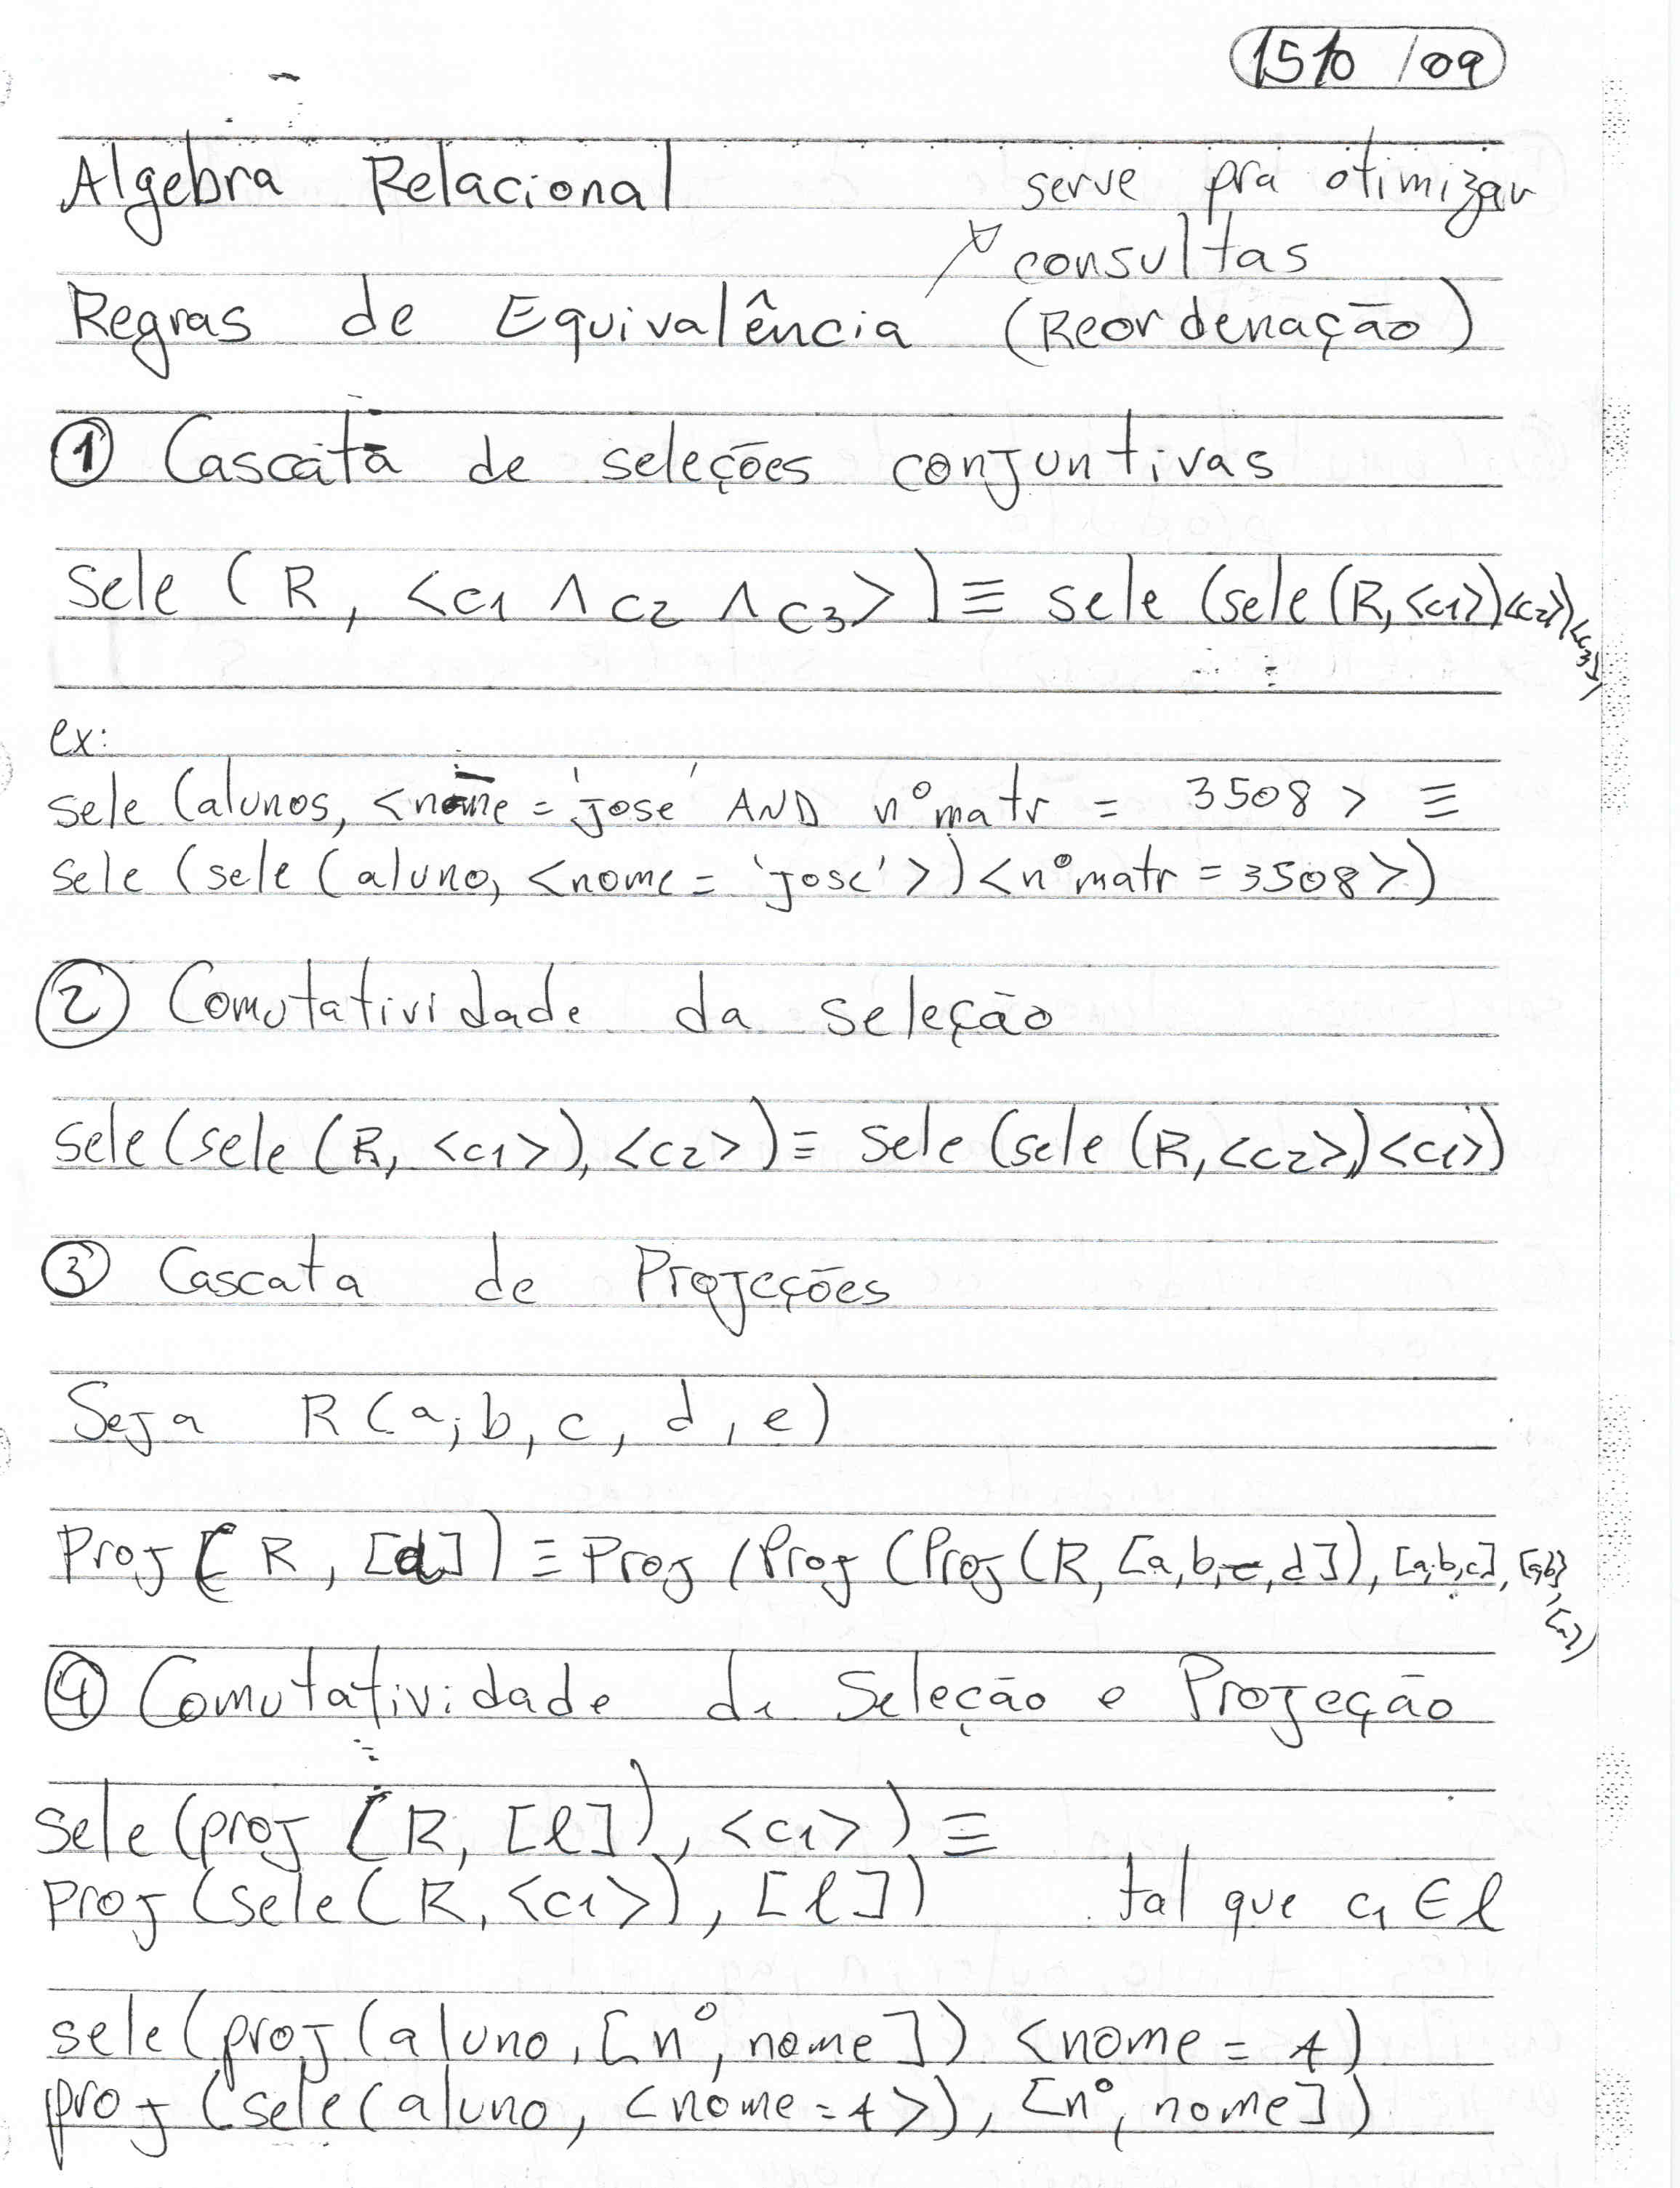 15/10 /09
Algebra Relacional
serve pra otimizar
consultas
Regras de Equivalência (Reordenação)
① Cascata de seleções conjuntivas
sele (R, <c1 ∧ c2 ∧ c3>) ≡ sele (sele (R,<c1>)<c2>)<c3>)
ex:
sele (alunos, <nome = 'jose' AND nº matr = 3508 > ≡
sele (sele (aluno, <nome = 'jose'>) <nº matr = 3508>)
② Comutatividade da seleção
sele (sele (R, <c1>), <c2>) = sele (sele (R,<c2>),<c1>)
③ Cascata de Projeções
Seja R (a, b, c, d, e)
Proj (R, [a]) ≡ Proj (Proj (Proj (R, [a,b,c,d]), [a,b,c], [a,b], [a])
④ Comutatividade de Seleção e Projeção
sele (proj (R, [l]), <c1>) ≡
proj (sele (R, <c1>), [l]) tal que c1 ∈ l
sele (proj (aluno, [nº, nome]) <nome = 4)
proj (sele (aluno, <nome = 4>), [nº, nome])